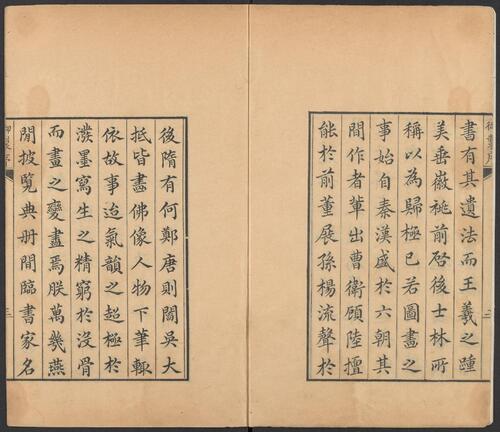 書有其遺法而王羲之踵
美垂徽祧前啓後士林所
稱以為歸極已若圖畫之
事始自秦漢盛於六朝其
間作者輩出曹衛顧陸擅
能於前董展孫楊流聲於
後隋有何鄭唐則閻吳大
抵皆畫佛像人物下筆輒
依故事迨氣韻之超極於
潑墨寫生之精窮於沒骨
而畫之變盡焉朕萬幾燕
閒披覽典册間臨書家名